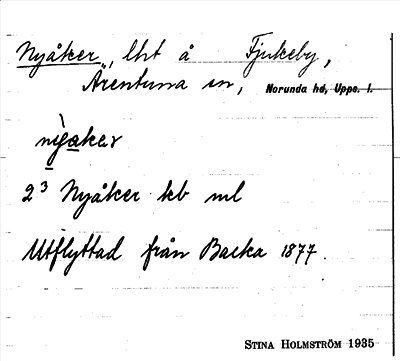 Nyåker, lht å Fjukeby,
Ärentuna sn, Norunda hd, Upps. l.
nỳakar
2³ Nyåker kb ml
Utflyttad från Backa 1877.
STINA HOLMSTRÖM 1935